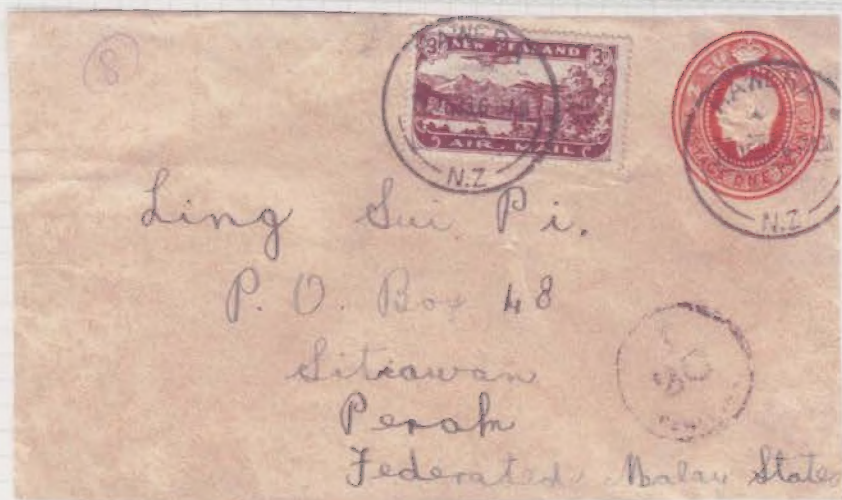 8
3d NEW ZEALAND 3d
AIR MAIL
N.Z
N.Z
Ling Sui Pi.
P. O. Box 48
Sitiawan
Perak
Federated Malay State